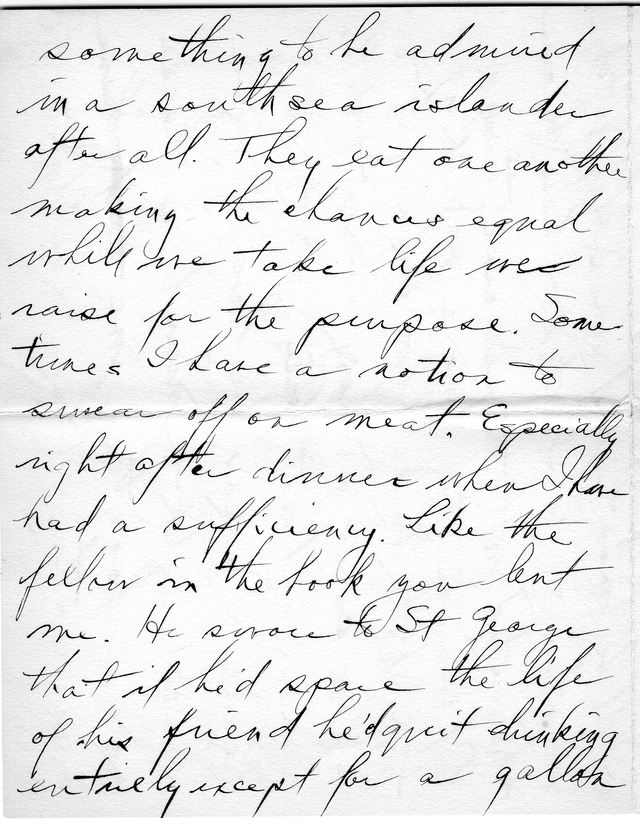 something to be admired
in a south sea islander
after all. They eat one another
making the chances equal
while we take life we
raise for the purpose. Some
times I have a notion to
swear off on meat. Especially
right after dinner when I have
had a sufficiency. Like the
fellow in the book you lent
me. He swore to St George
that if he'd spare the life
of his friend he'd quit drinking
entirely except for a gallon